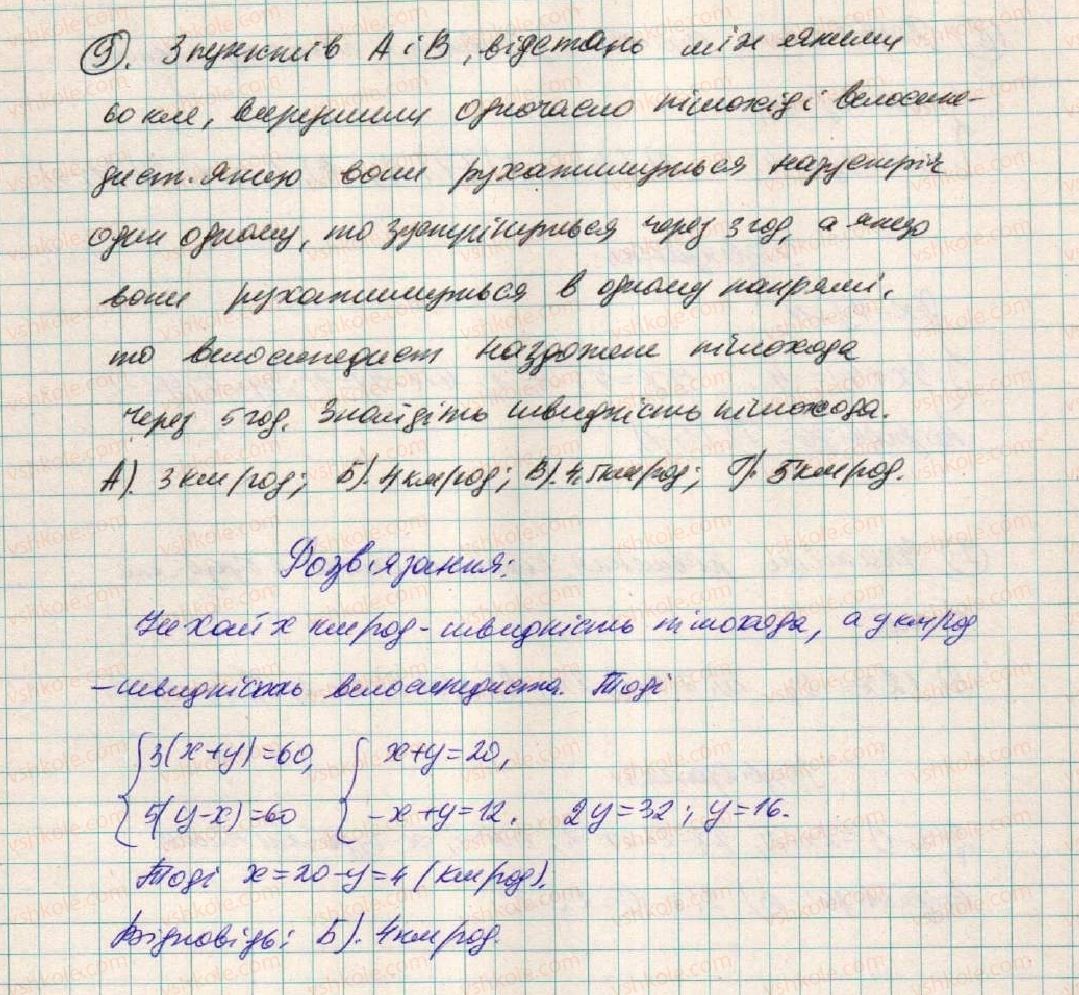 9). З пунктів А і В, відстань між якими
60 км, вирушили одночасно пішохід і велосипе-
дист. Якщо вони рухатимуться назустріч
один одному, то зустрінуться через 3 год, а якщо
вони рухатимуться в одному напрямі,
то велосипедист наздожене пішохода
через 5 год. Знайдіть швидкість пішохода.
А). 3 км/год; Б). 4 км/год; В). 4,5 км/год; Г). 5 км/год.
Розв'язання:
Нехай х км/год - швидкість пішохода, а y км/год
- швидкість велосипедиста. Тоді
{3(x+y)=60, { x+y=20,
{5(y-x)=60 { -x+y=12. 2y=32; y=16.
Тоді x=20-y=4 (км/год).
Відповідь: Б). 4 км/год.
vshkole.com